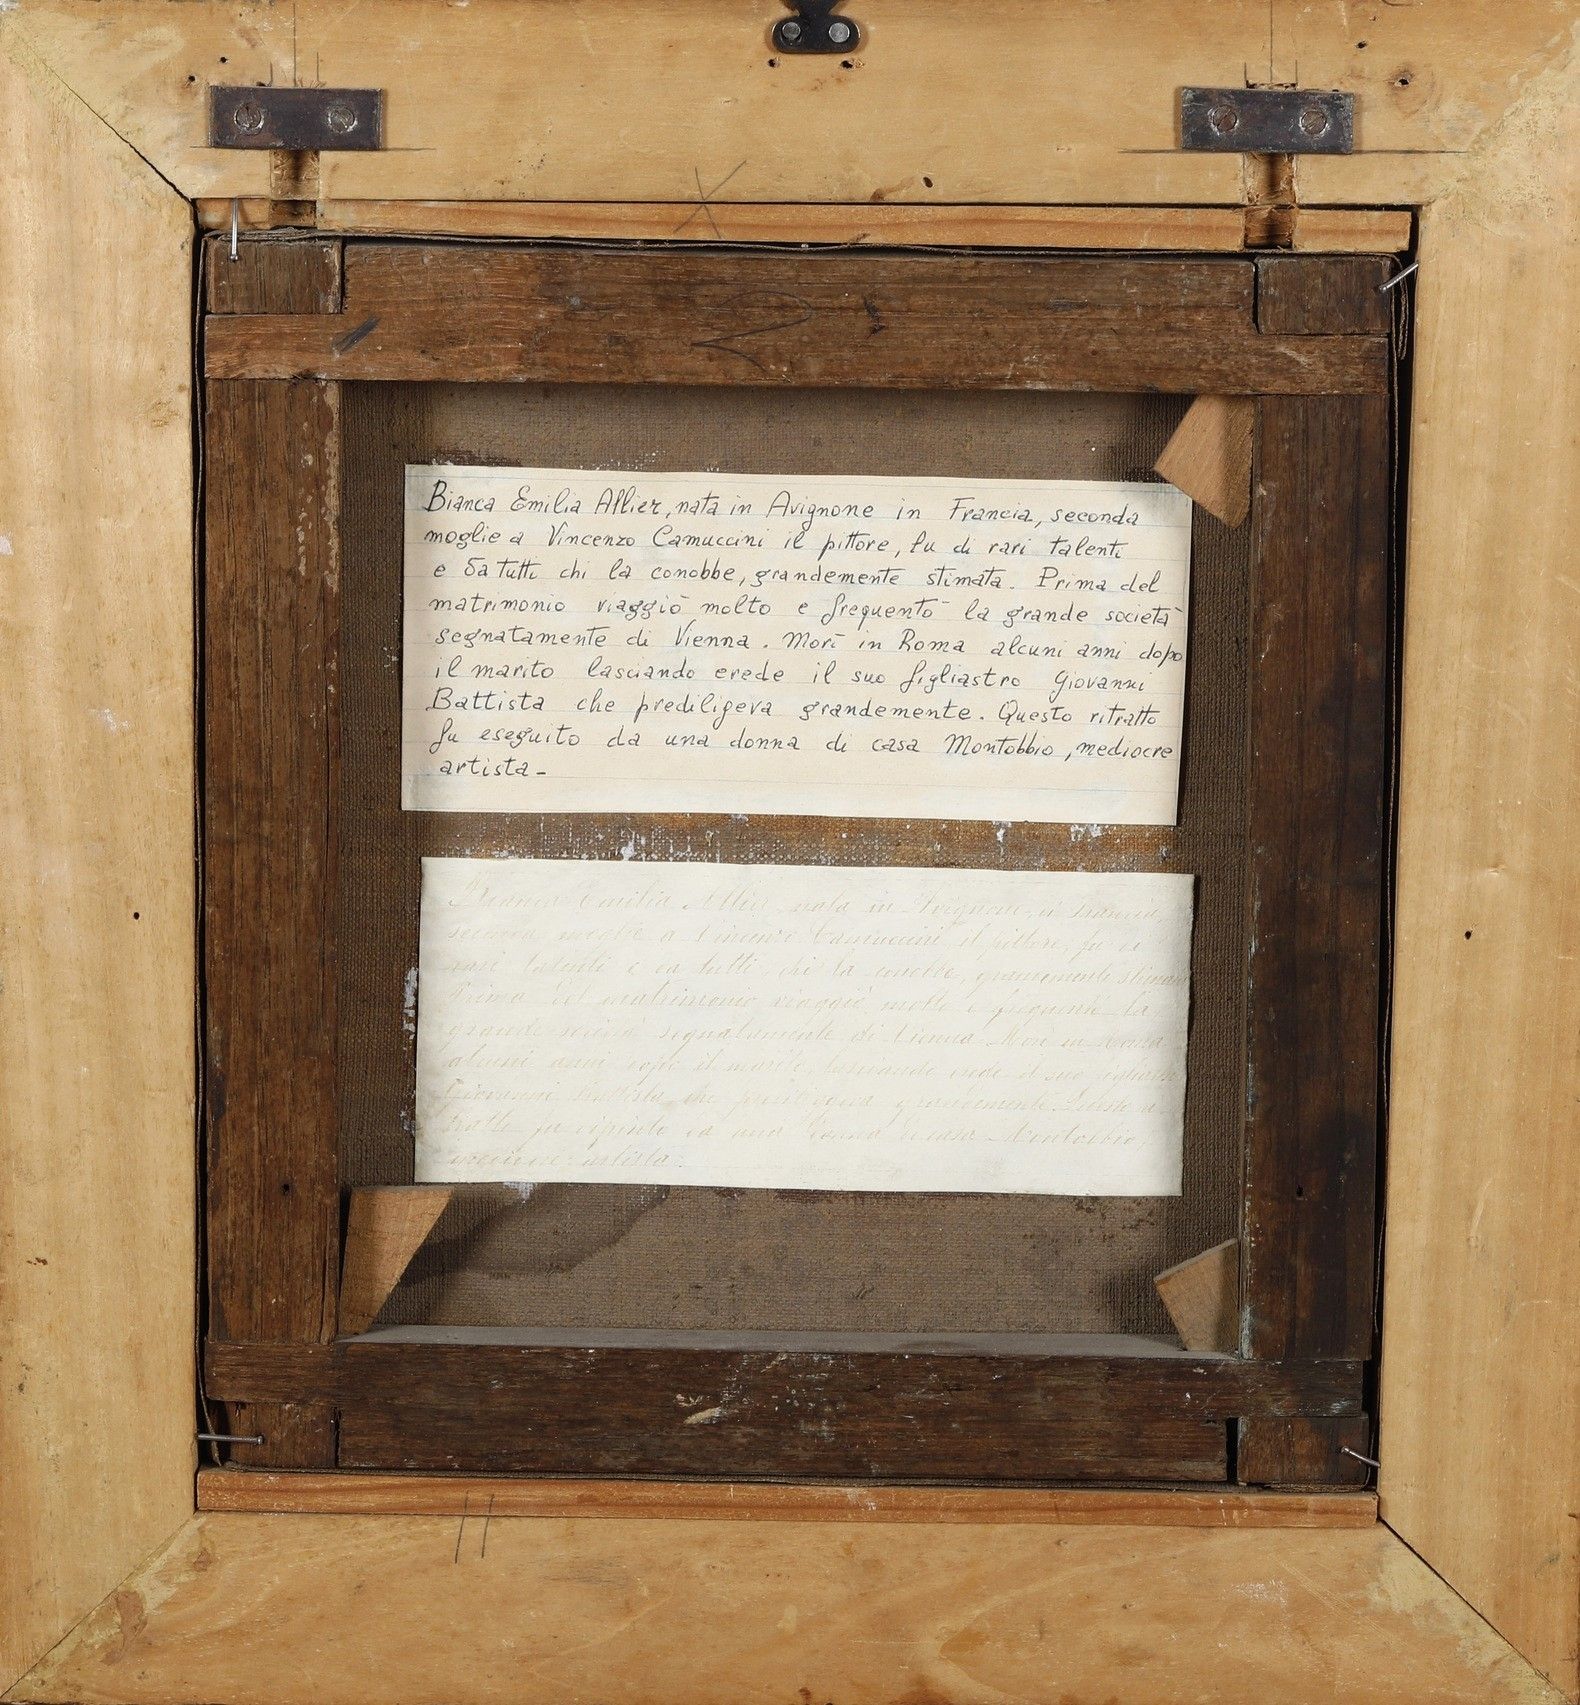 2
Bianca Emilia Allier, nata in Avignone in Francia, seconda
moglie a Vincenzo Camuccini il pittore, fu di rari talenti
e da tutti chi la conobbe, grandemente stimata. Prima del
matrimonio viaggiò molto e frequentò la grande società
segnatamente di Vienna. Morì in Roma alcuni anni dopo
il marito lasciando erede il suo figliastro Giovanni
Battista che prediligeva grandemente. Questo ritratto
fu eseguito da una donna di casa Montobbio, mediocre
artista-
Bianca Emilia Allier, nata in Avignone, in Francia,
seconda moglie a Vincenzo Camuccini il pittore, fu di
rari talenti e da tutti chi la conobbe, grandemente stimata
Prima del matrimonio viaggiò molto e frequentò la
grande società segnatamente di Vienna Morì in Roma
alcuni anni dopo il marito, lasciando erede il suo
Giovanni Battista che prediligeva grandemente. Questo ri-
tratto fu da una donna di casa Montobbio,
mediocre artista.